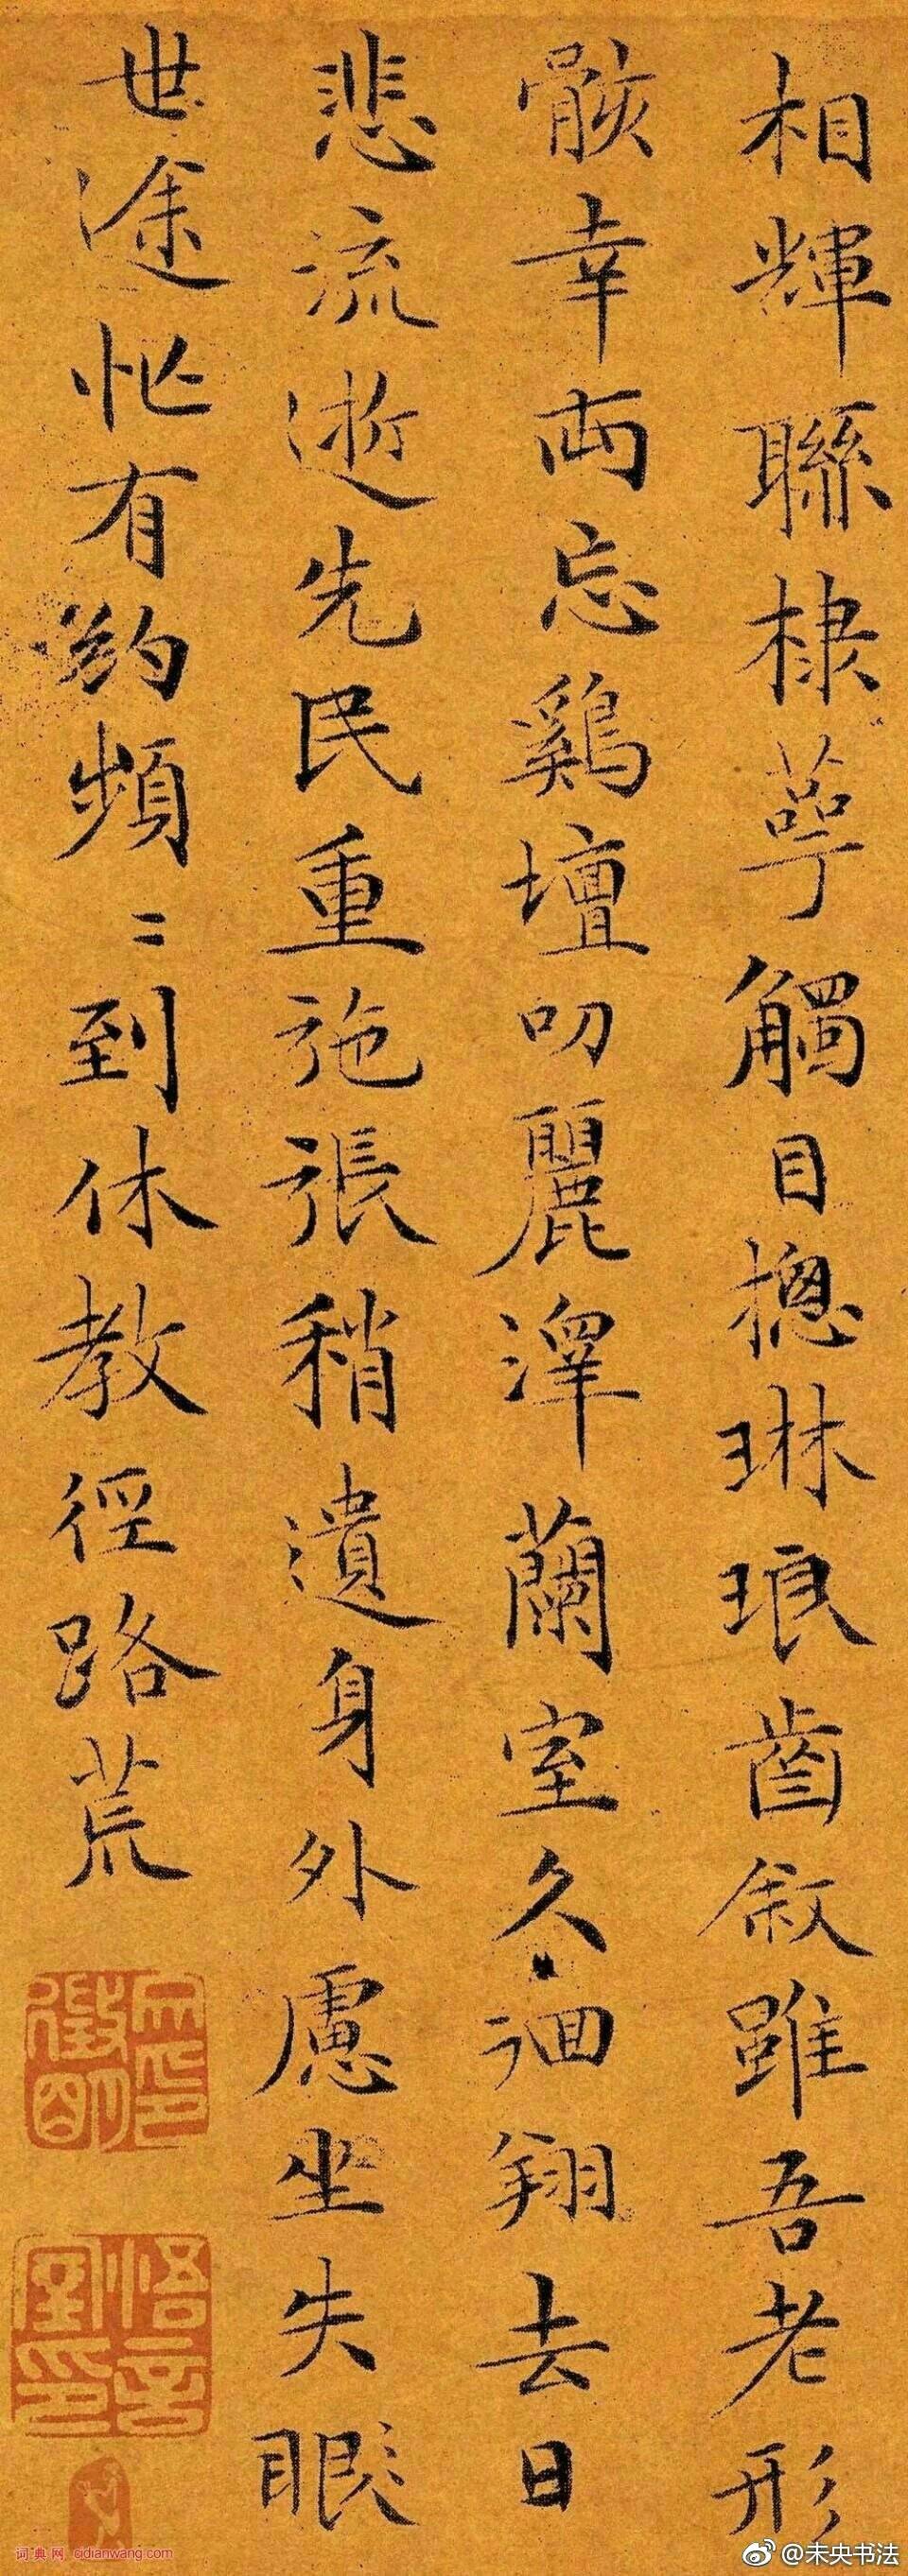 相輝聯棣萼觸目揔琳琅齒敘雖吾老形
骸幸兩忘鷄壇叨麗澤蘭室久洄翔去日
悲流逝先民重弛張稍遺身外慮坐失眼
世途忙有約頻〻到休教徑路荒
徵明
悟言室印
词典网 cidianwang.com
@未央书法